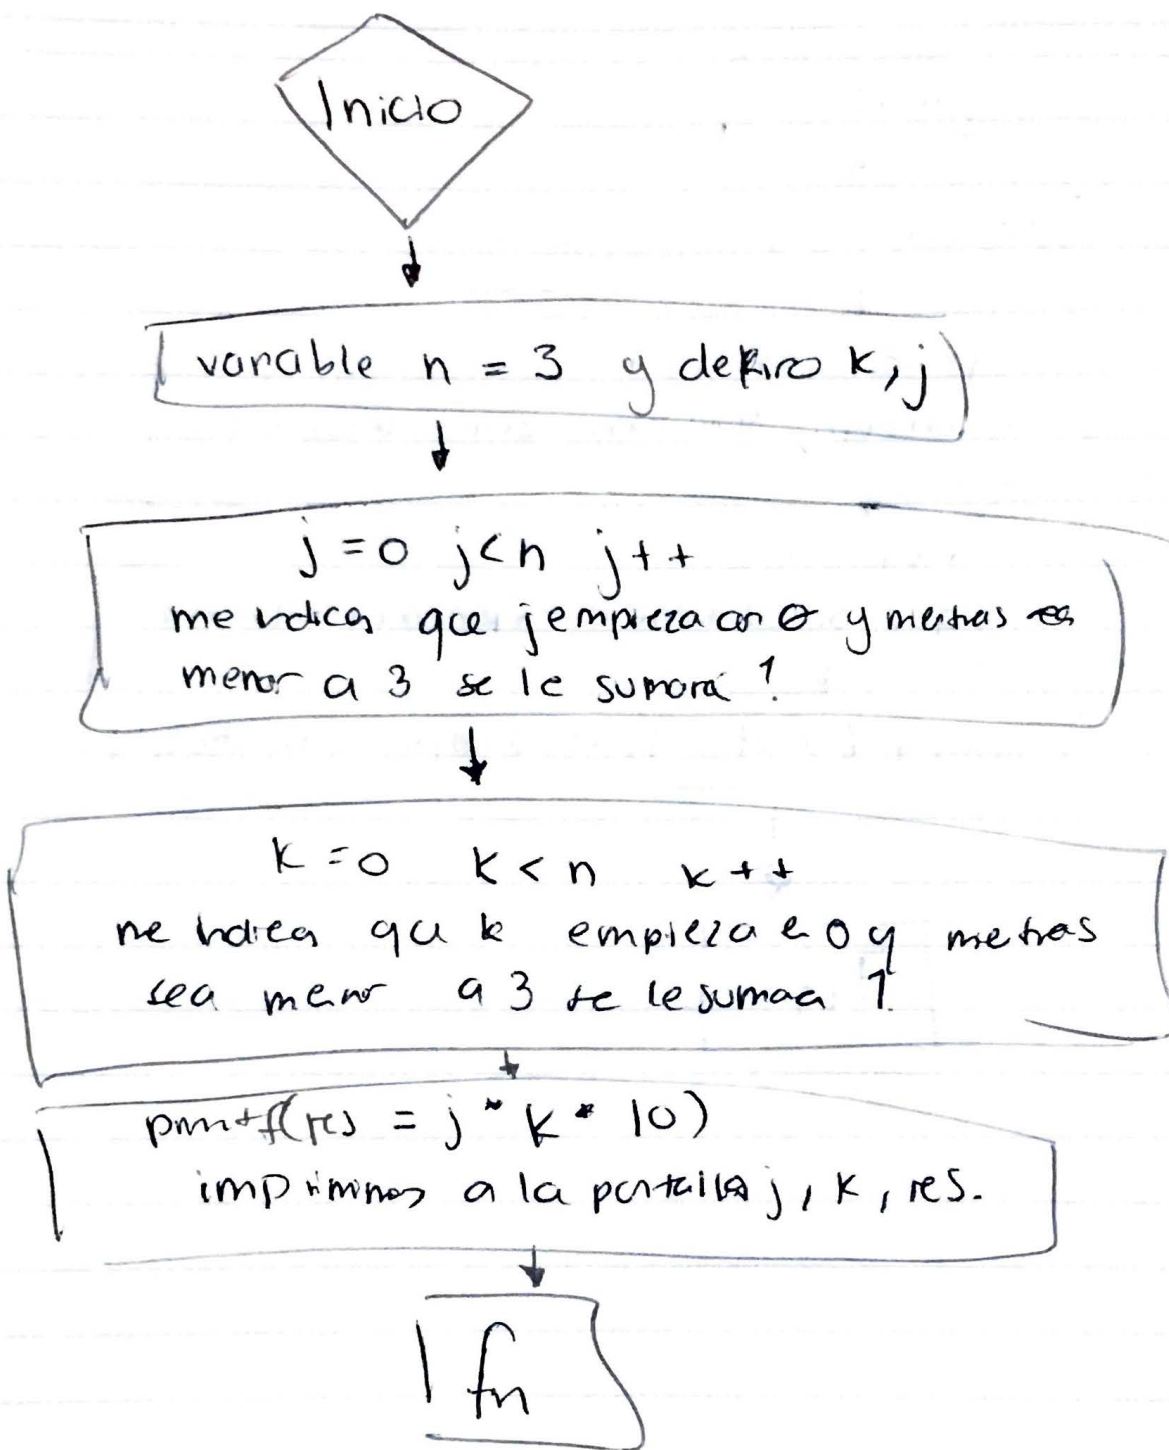 Inicio
variable n = 3 y defino k, j
j = 0 j < n j + +
me indica que j empieza con 0 y mientras es
menor a 3 se le sumara 1
k = 0 k < n k + +
me indica que k empieza en 0 y mientras
sea menor a 3 se le sumara 1.
printf(res = j * k * 10)
imprimimos a la pantalla j, k, res.
fin